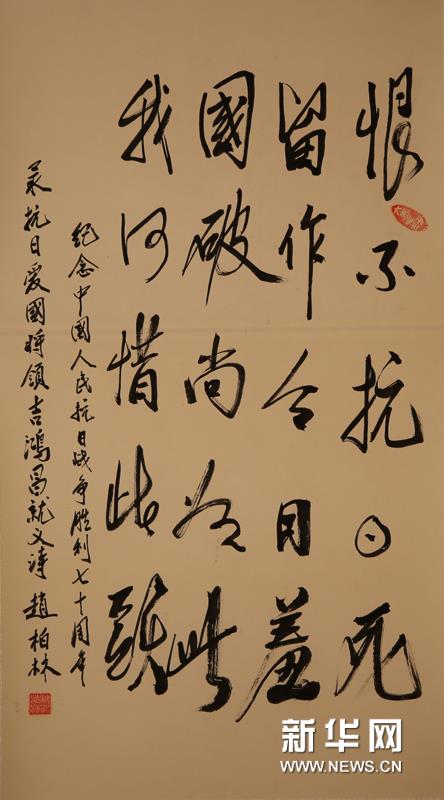 恨不抗日死
留作今日羞
國破尚如此
我何惜此頭
纪念中國人民抗日战争胜利七十周年
录抗日爱國将领吉鸿昌就义诗 趙柏林
新华网
WWW.NEWS.CN